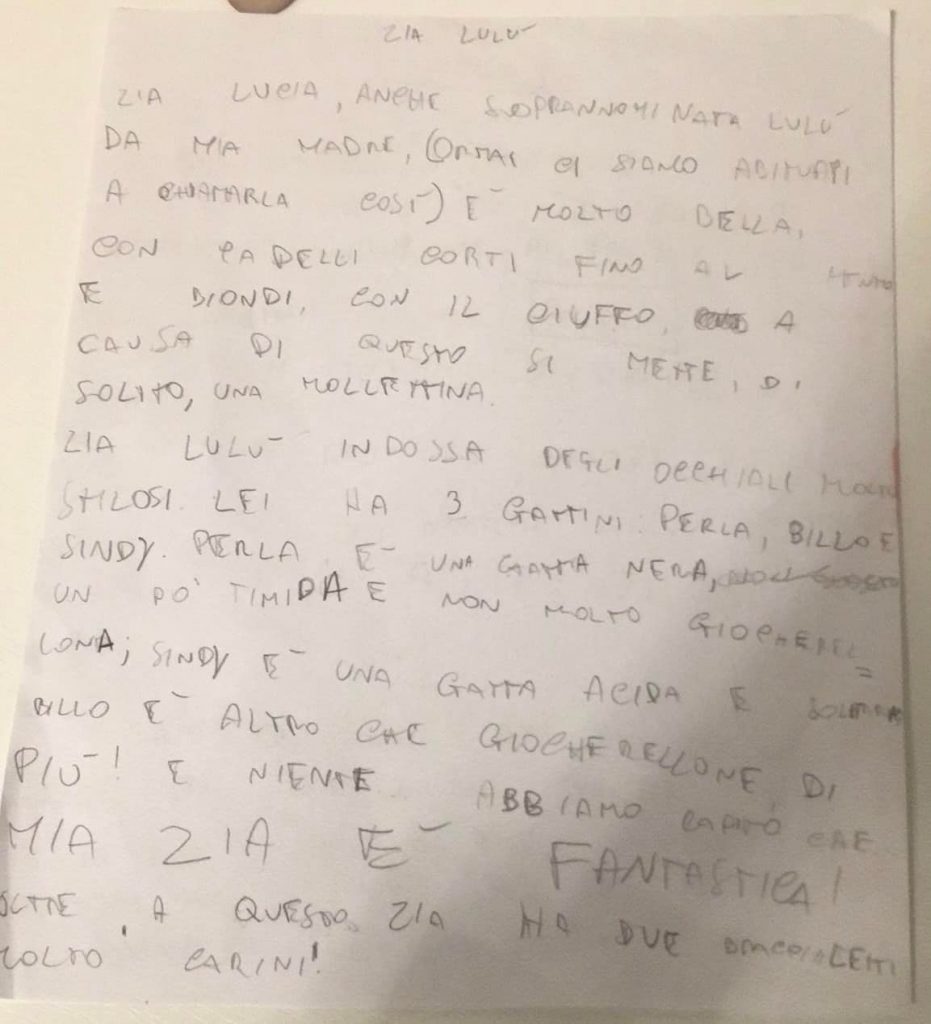 ZIA LULÙ
ZIA LUCIA, ANCHE SOPRANNOMINATA LULÙ
DA MIA MADRE, (ORMAI CI SIAMO ABITUATI
A CHIAMARLA COSÌ) È MOLTO BELLA,
CON CAPELLI CORTI FINO AL MENTO
E BIONDI, CON IL CIUFFO, A
CAUSA DI QUESTO SI METTE, DI
SOLITO, UNA MOLLETTINA.
ZIA LULÙ INDOSSA DEGLI OCCHIALI MOLTO
STILOSI. LEI HA 3 GATTINI: PERLA, BILLO E
SINDY. PERLA È UNA GATTA NERA,
UN PÒ TIMIDA E NON MOLTO GIOCHEREL=
LONA; SINDY È UNA GATTA ACIDA E
BILLO È ALTRO CHE GIOCHERELLONE, DI
PIÙ! E NIENTE ABBIAMO CAPITO CHE
MIA ZIA È FANTASTICA!
OLTRE, A QUESTO, ZIA HA DUE
MOLTO CARINI!